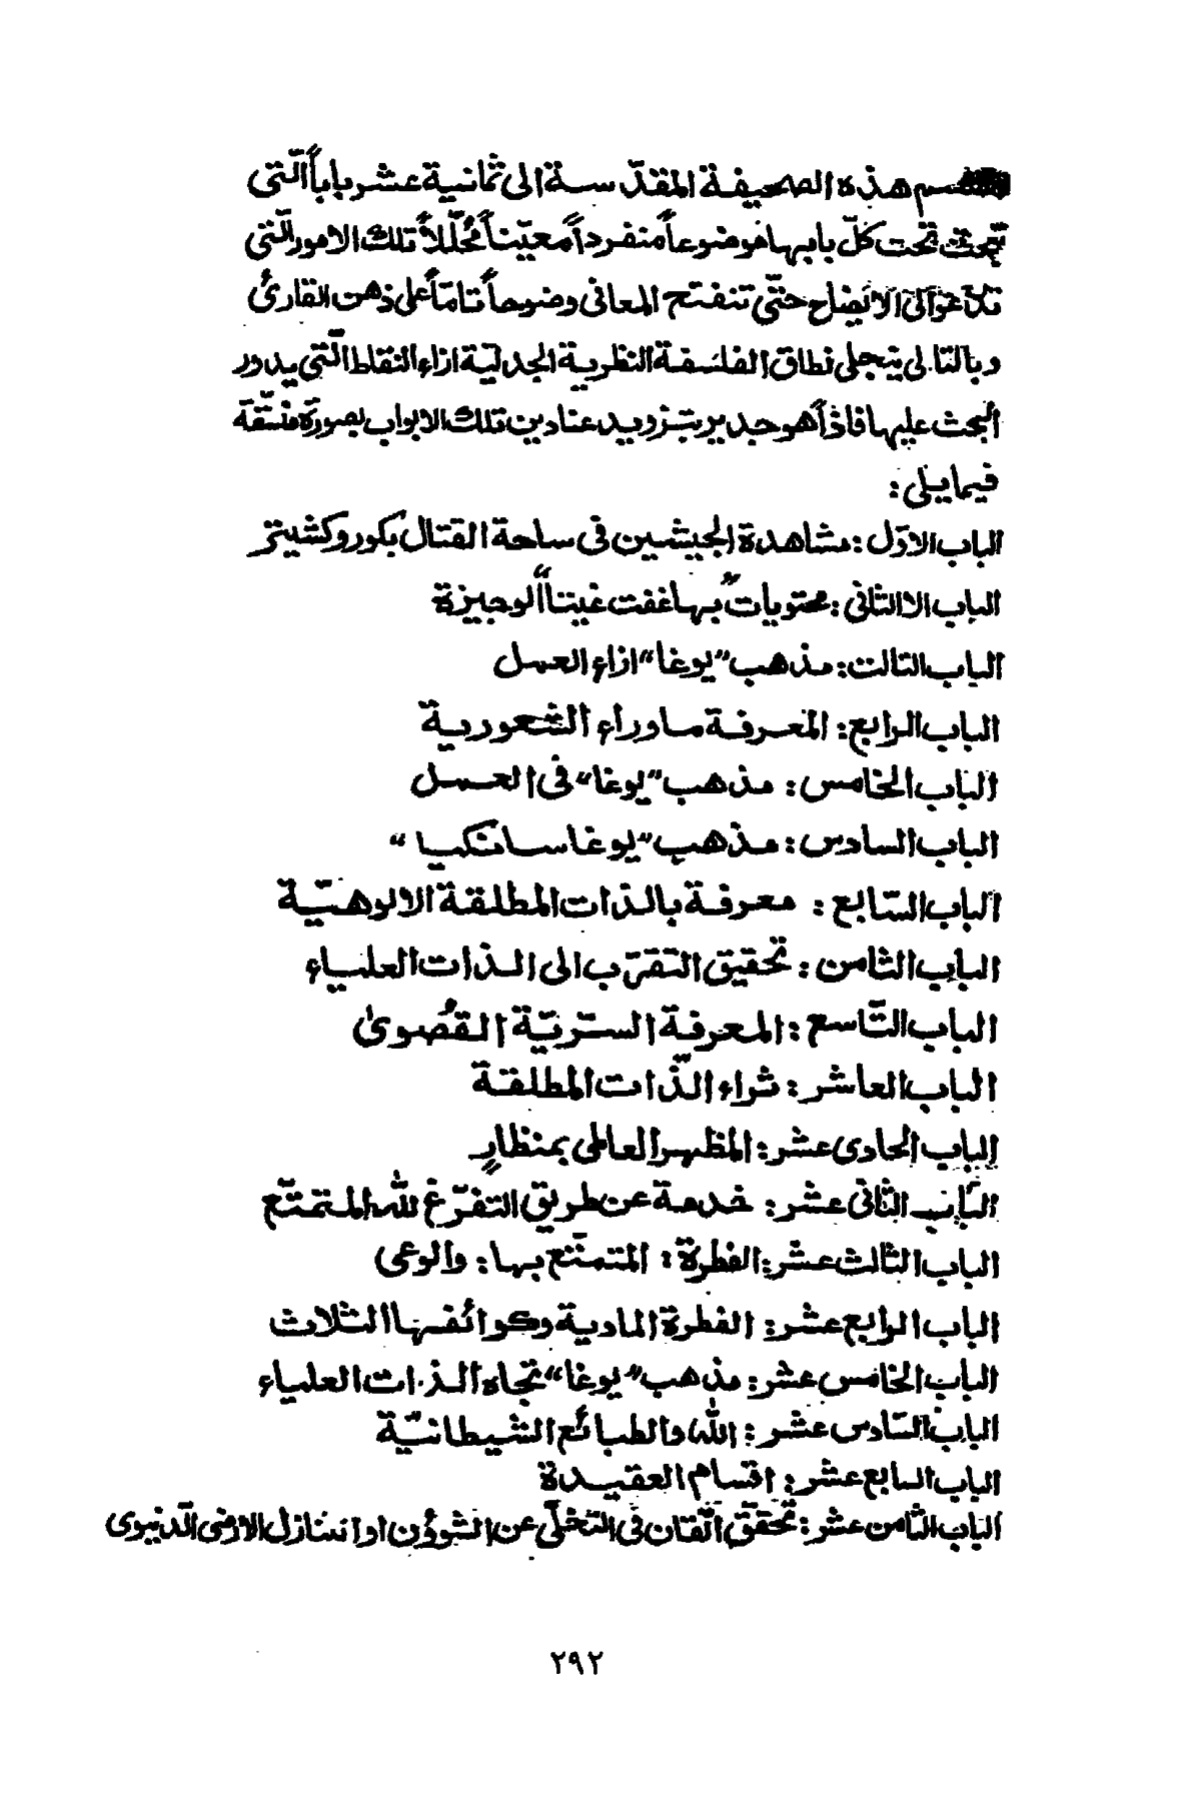 هذه الصحيفة المقدّسة الى ثمانية عشر باباً الّتى
تبحث تحت كلّ بابها موضوعاً منفرداً معيّناً مُحلّلاً تلك الامور الّتى
الايضاح حتّى تنفتح المعانى وضوحاً تامّاً على ذهن القارئ
وبالتالى يتجلى نطاق الفلسفة النظرية الجدليّة ازاء النقاط الّتى يدور
البحث عليها فاذاً هو جدير بتزويد عنادين تلك الابواب بصورة منسّقة
فيما يلى :
الباب الاوّل : مشاهدة الجيشين فى ساحة القتال بكوروكشيتر
الباب الاالثانى : محتويات "بهاغفت غيتا" الوجيزة
الباب الثالث : مذهب "يوغا" ازاء العمل
الباب الرابع : المعرفة ماوراء الشعورية
الباب الخامس : مذهب "يوغا" فى العمل
الباب السادس : مذهب "يوغا سانكيا"
الباب السّابع : معرفة بالذات المطلقة الالوهيّة
الباب الثامن : تحقيق التقرّب الى الذات العلياء
الباب التّاسع : المعرفة السرّيّة القُصوىٰ
الباب العاشر : ثراء الذّات المطلقة
الباب الحادى عشر : المظهر العالمى بمنظارٍ
الباب الثانى عشر : خدمة عن طريق التفرّغ لله المتمتّع
الباب الثالث عشر : الفطرة : المتمتّع بها : والوعى
الباب الرابع عشر : الفطرة المادية وكوائفها الثلاث
الباب الخامس عشر : مذهب "يوغا" تجاه الذات العلياء
الباب السّادس عشر : الله والطبائع الشيطانيّة
الباب السابع عشر : اقسام العقيدة
الباب الثامن عشر : تحقّق اتّقان فى التخلّى عن الشوؤن او التنازل الارضى الدنيوى
٢٩٢